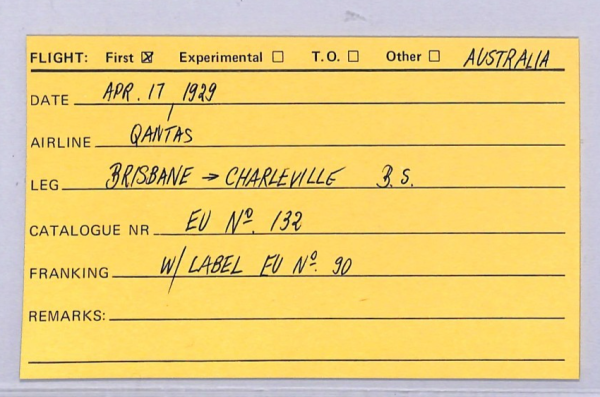 FLIGHT: First ☒ Experimental ☐ T.O. ☐ Other ☐ AUSTRALIA
DATE APR. 17, 1929
AIRLINE QANTAS
LEG BRISBANE → CHARLEVILLE B.S.
CATALOGUE NR EU Nº. 132
FRANKING W/ LABEL EU Nº. 90
REMARKS: